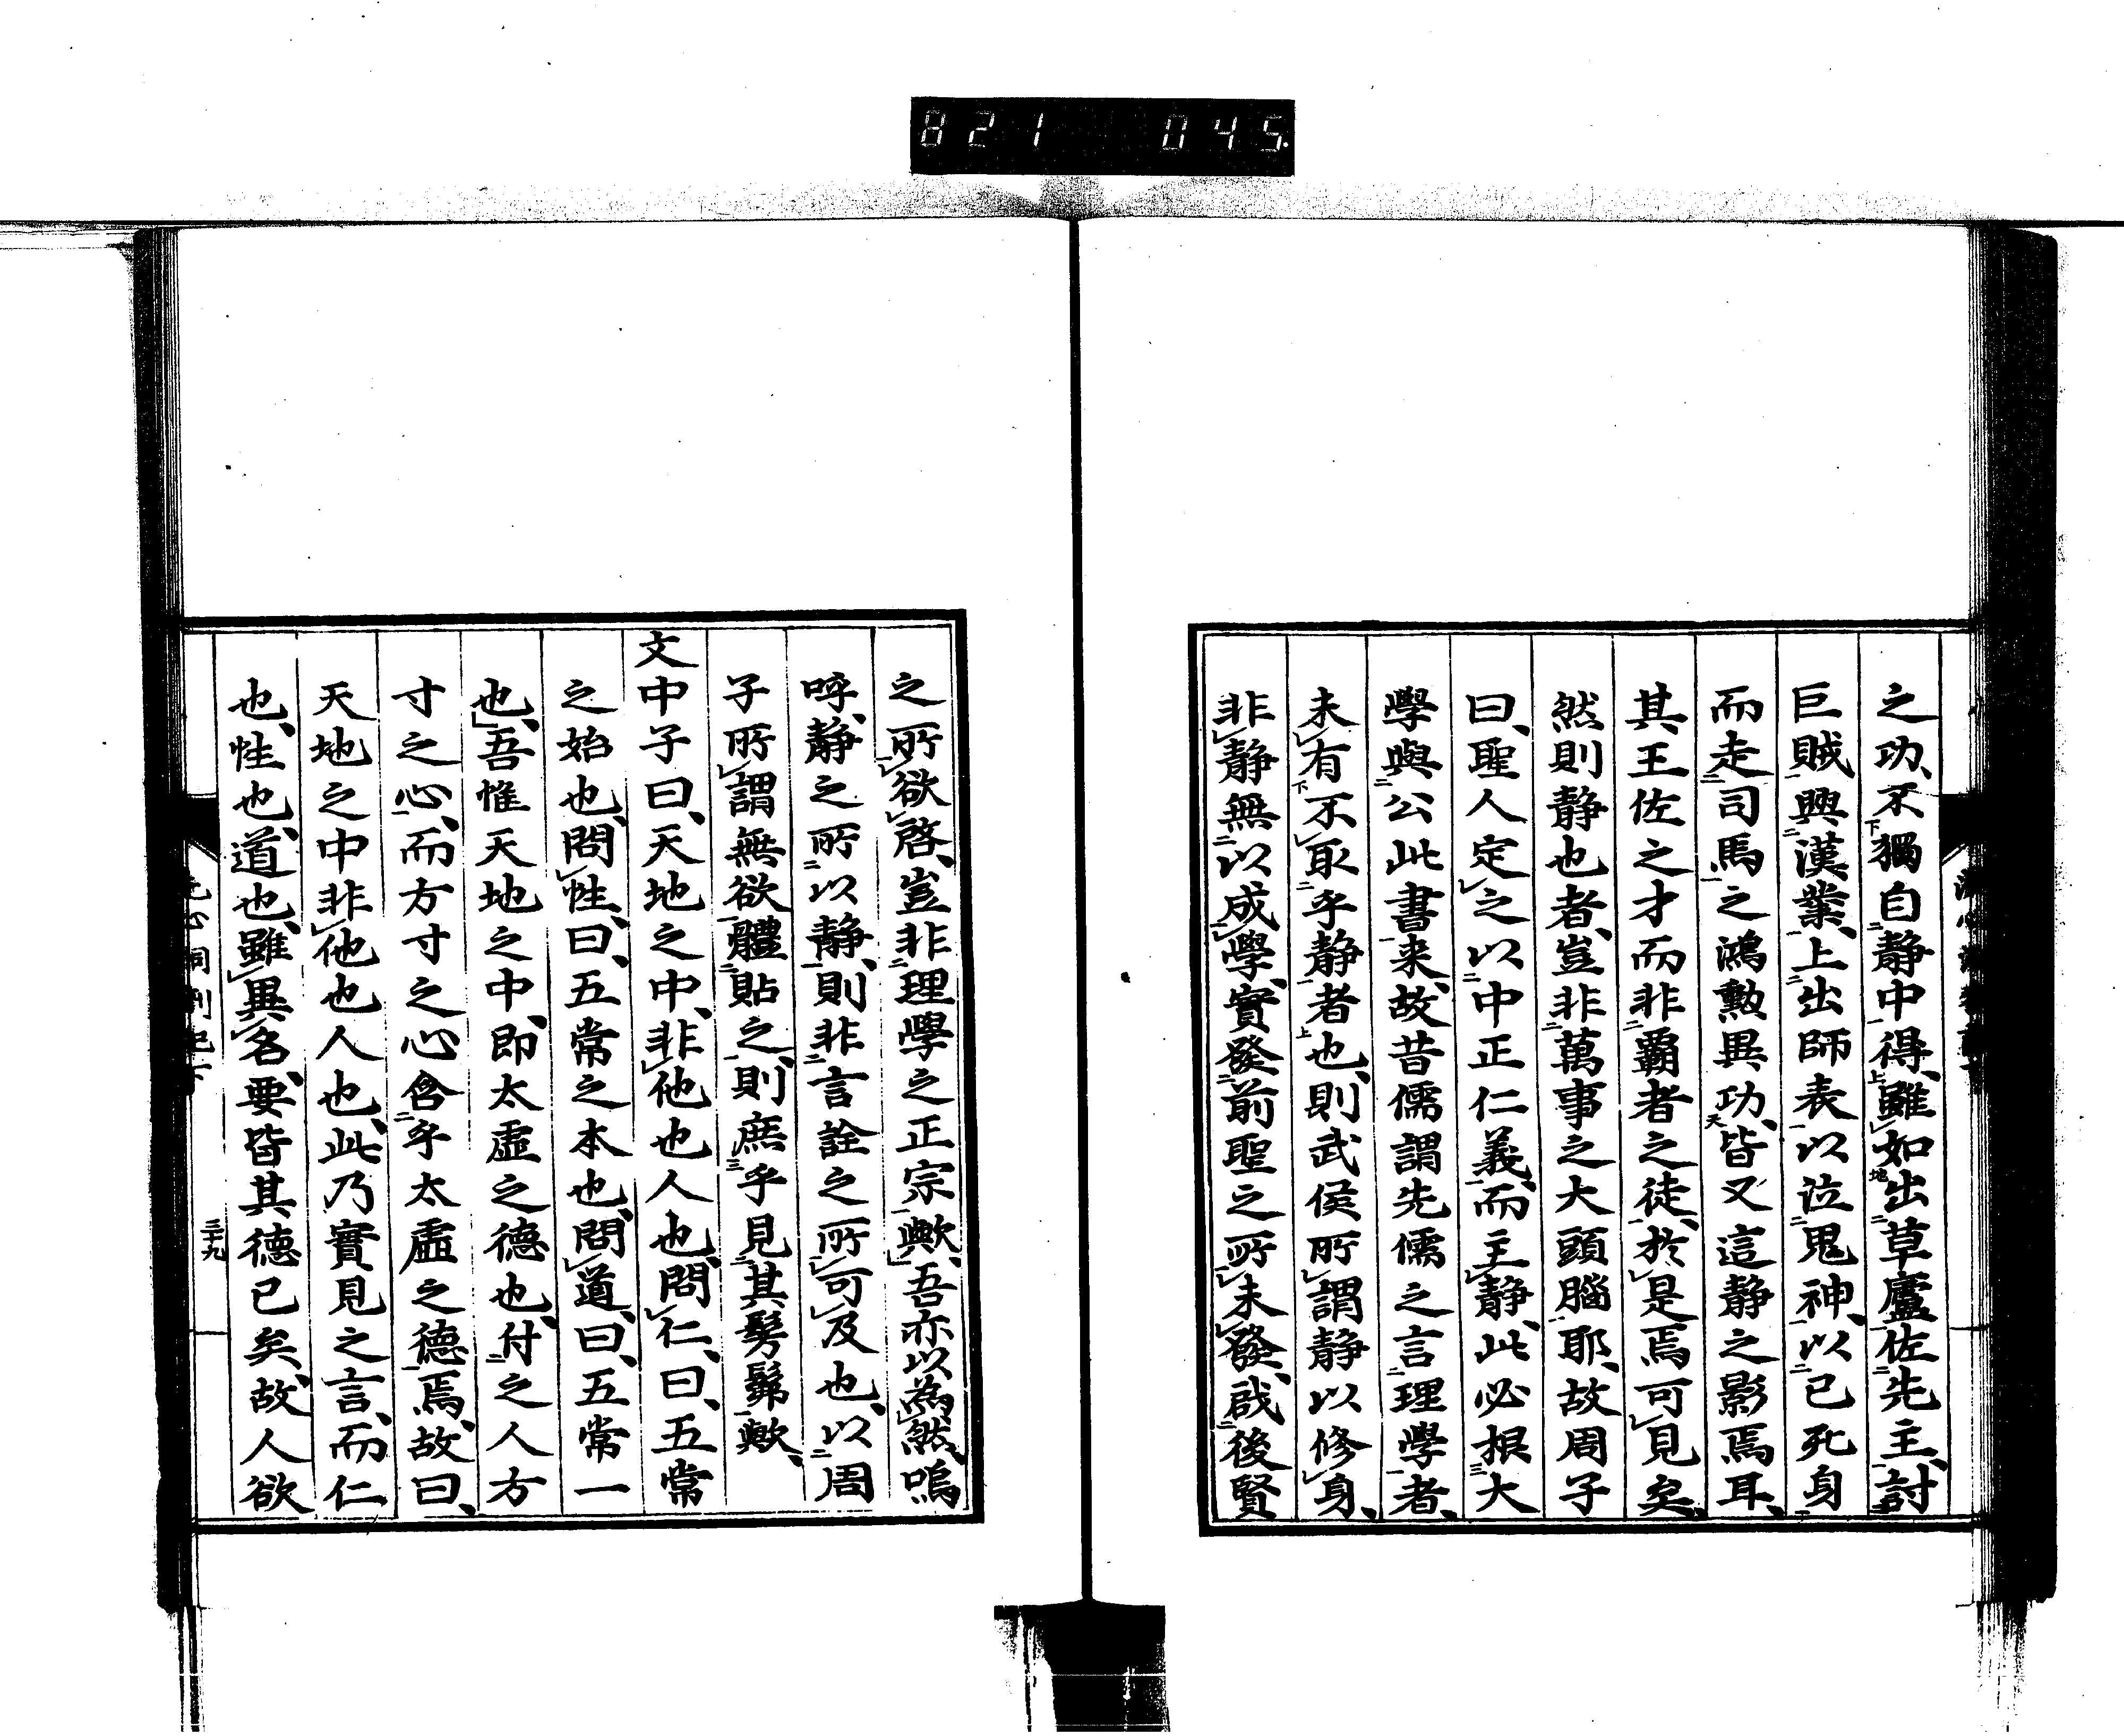 821 045
之功、不獨自静中得、雖如出草廬佐先主、討
巨賊興漢業、上出師表以泣鬼神、以已死身
而走司馬之鴻勲異功、皆又這静之影焉耳、
其王佐之才而非覇者之徒、於是焉可見矣、
然則静也者、豈非萬事之大頭腦耶、故周子
曰、聖人定之以中正仁義、而主静、此必根大
學與公此書来、故昔儒謂先儒之言理學者、
未有不取乎静者也、則武侯所謂静以修身、
非静無以成學、實發前聖之所未發、啟後賢
之所欲啓、豈非理學之正宗歟、吾亦以為然、嗚
呼、静之所以静、則非言詮之所可及也、以周
子所謂無欲體貼之、則庶乎見其髣髴歟、
文中子曰、天地之中、非他也人也、問仁、曰、五常
之始也、問性、曰、五常之本也、問道、曰、五常一
也、吾惟天地之中、即太虚之德也、付之人方
寸之心、而方寸之心含乎太虚之德焉、故曰、
天地之中非他也人也、此乃實見之言、而仁
也、性也、道也、雖異名、要皆其德已矣、故人欲
三十九